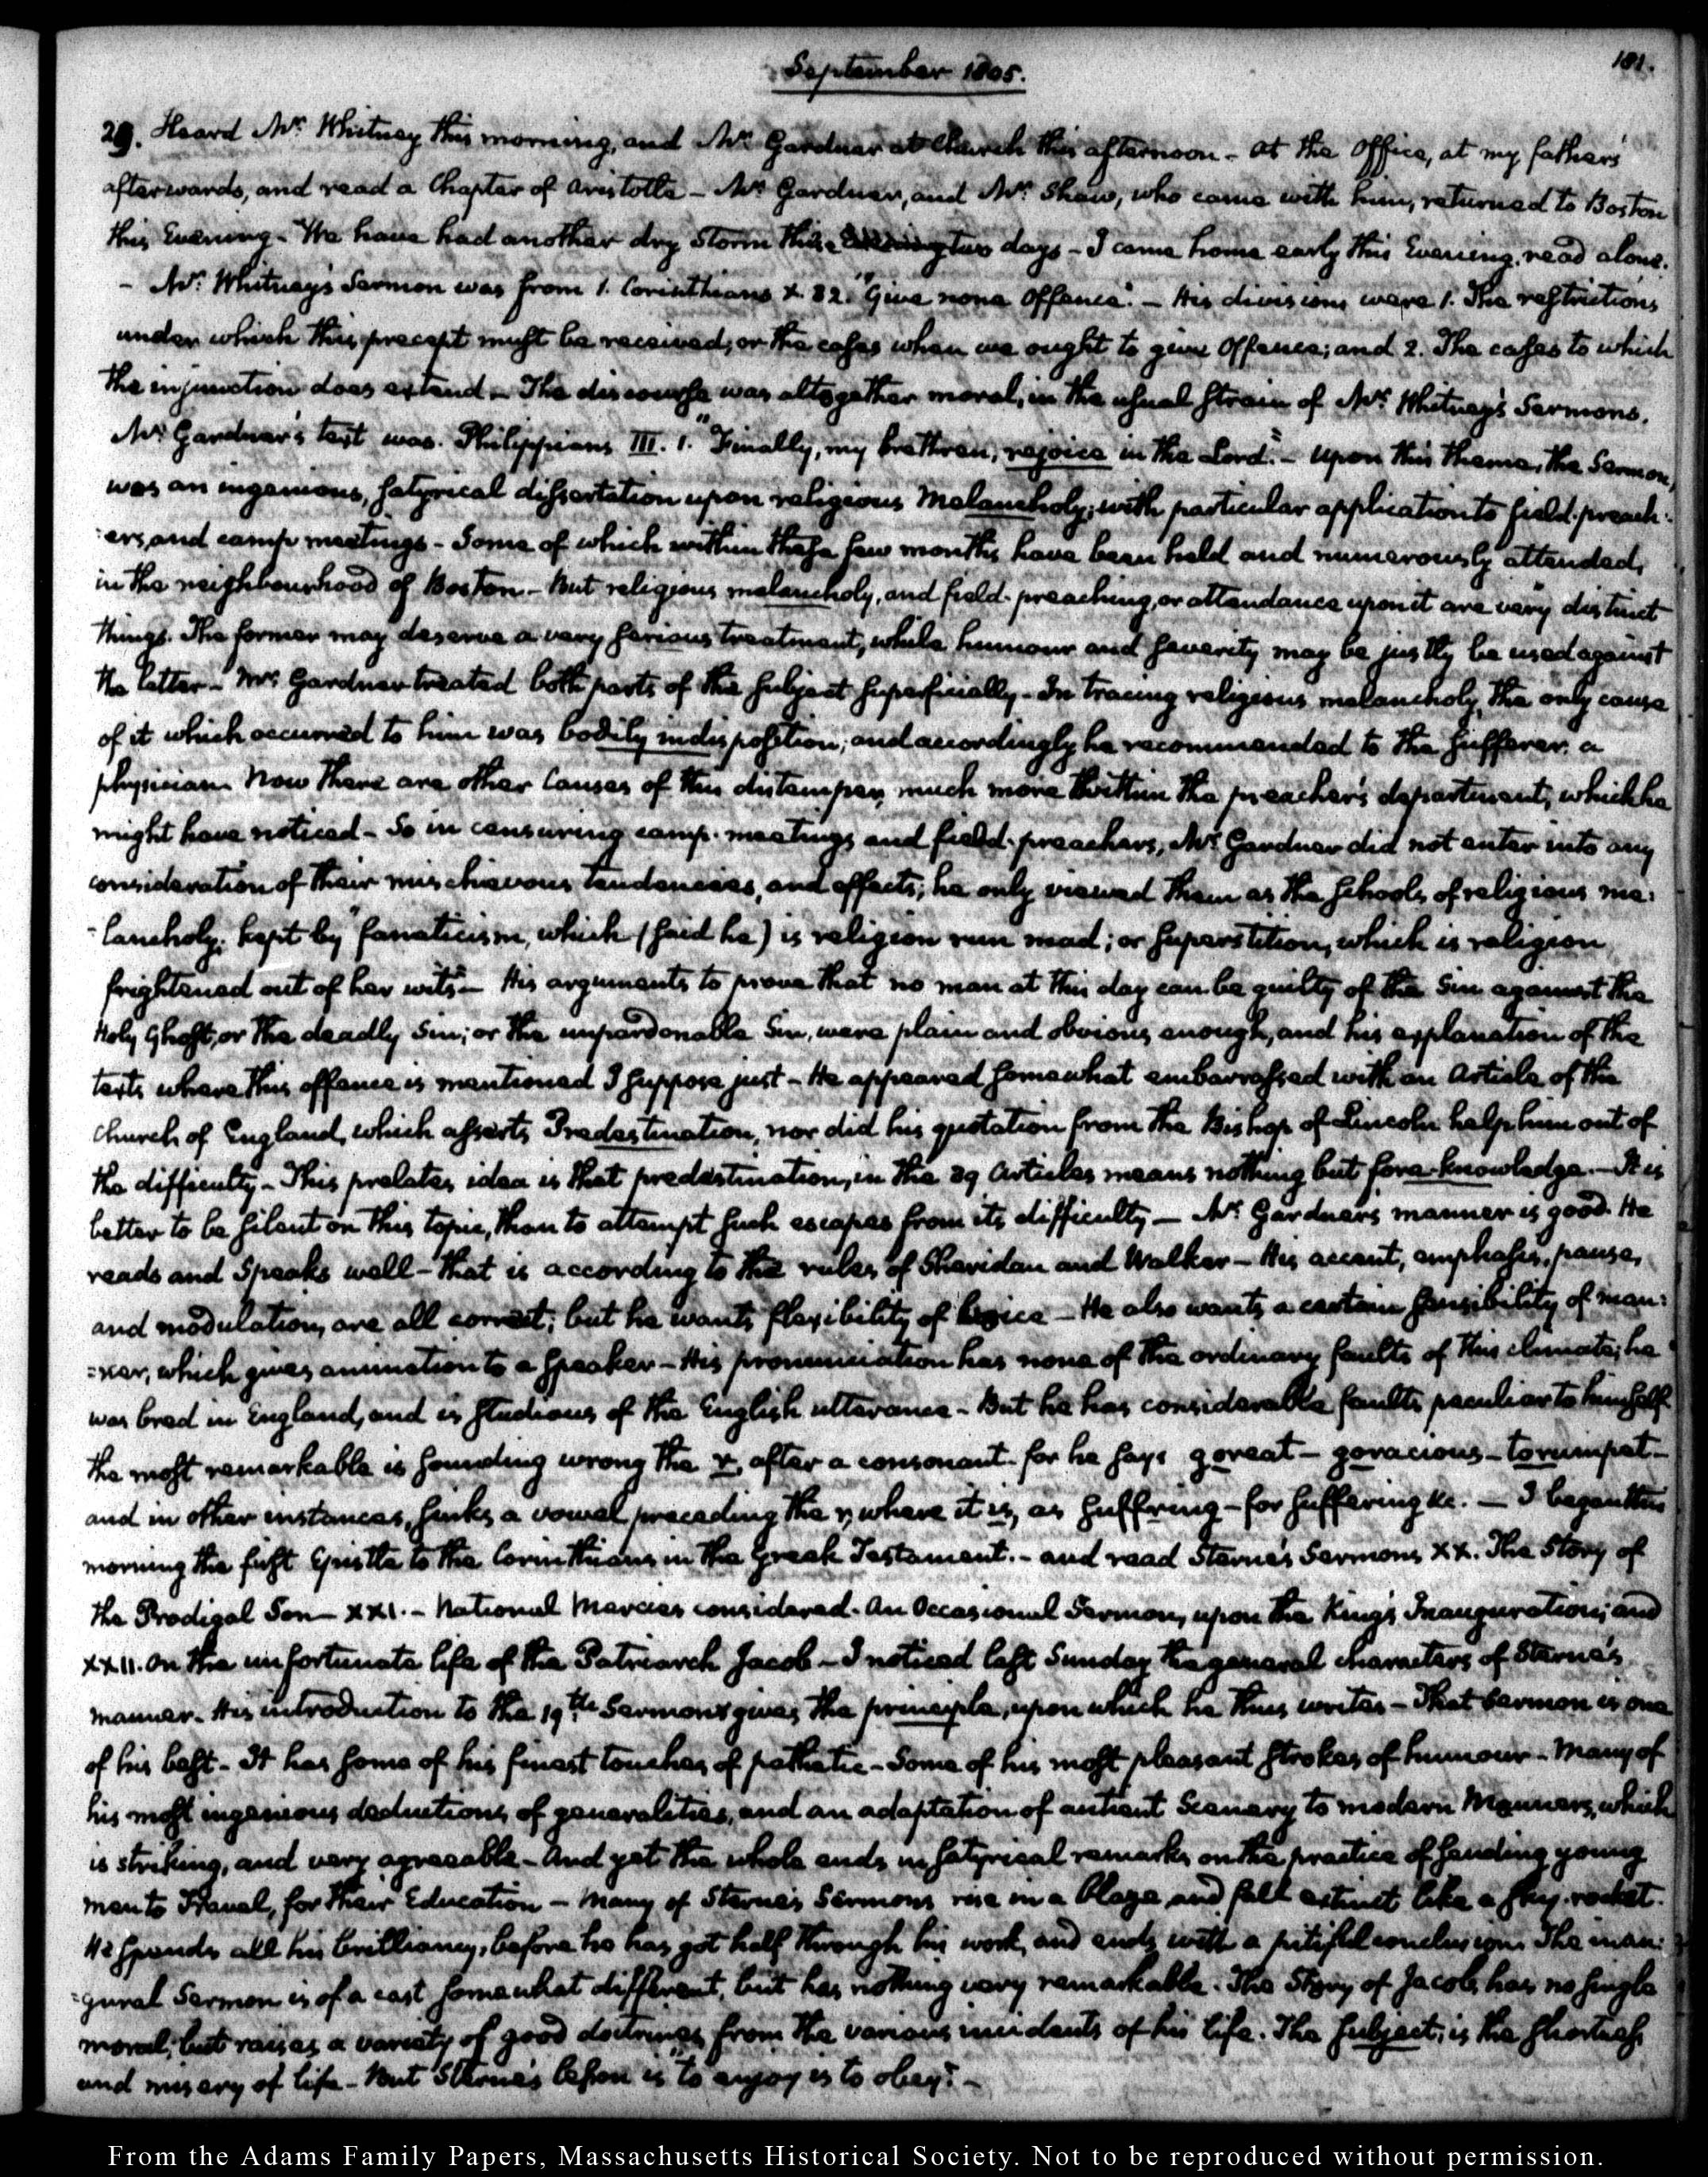 September 1805.
181.
29. Heard Mr. Whitney this morning, and Mr. Gardner at Church this afternoon - at the Office, at my father's
afterwards, and read a Chapter of Aristotle - Mr. Gardner, and Mr. Shaw, who came with him, returned to Boston
this Evening - We have had another dry storm these two days - I came home early this Evening, read alone.
- Mr. Whitney's Sermon was from 1. Corinthians X. 32. "Give none Offence". - His divisions were 1. The restrictions
under which this precept must be received; or the cases when we ought to give Offence; and 2. The cases to which
the injunction does extend - The discourse was altogether moral, in the usual strain of Mr. Whitney's Sermons.
Mr. Gardner's text was. Philippians III. 1. "Finally, my brethren, rejoice in the Lord." - Upon this theme, the Sermon,
was an ingenious, satyrical dissertation upon religious Melancholy; with particular application to field-preach-
:ers, and camp meetings - Some of which within these few months have been held and numerously attended,
in the neighbourhood of Boston - But religious melancholy, and field-preaching, or attendance upon it are very distinct
things. The former may deserve a very serious treatment, while humour and severity may be justly be used against
the latter - Mr. Gardner treated both parts of the subject superficially - In tracing religious melancholy, the only cause
of it which occurred to him was bodily indisposition; and accordingly he recommended to the sufferer, a
physician. Now there are other Causes of this distemper, much more within the preacher's department, which he
might have noticed - So in censuring camp-meetings and field-preachers, Mr. Gardner did not enter into any
consideration of their mischievous tendencies, and effects; he only viewed them as the schools of religious me:
-lancholy; kept by "fanaticism, which (said he) is religion run mad; or superstition, which is religion
frightened out of her wits" - His arguments to prove that no man at this day can be guilty of the Sin against the
Holy Ghost, or the deadly Sin; or the unpardonable Sin, were plain and obvious enough, and his explanation of the
texts where this offence is mentioned I suppose just - He appeared somewhat embarrassed with an Article of the
church of England, which asserts Predestination, nor did his quotation from the Bishop of Lincoln help him out of
the difficulty - This prelate's idea is that predestination, in the 39 Articles means nothing but fore-knowledge. - It is
better to be silent on this topic, than to attempt such escapes from its difficulty - Mr. Gardner's manner is good. He
reads and Speaks well - that is according to the rules of Sheridan and Walker - His accent, emphasis, pause,
and modulation, are all correct; but he wants flexibility of voice - He also wants a certain sensibility of man:
=ner, which gives animation to a speaker - His pronunciation has none of the ordinary faults of this climate; he
was bred in England, and is studious of the English utterance - But he has considerable faults peculiar to himself
the most remarkable is sounding wrong the r, after a consonant - for he says goreat - goracious - torumpet -
and in other instances, sinks a vowel preceding the r, where it is, as suffring - for suffering &c. - I began this
morning the first Epistle to the Corinthians in the Greek Testament. - and read Sterne's Sermons XX. The Story of
the Prodigal Son - XXI. - National Mercies considered. An Occasional Sermon, upon the King's Inauguration; and
XXII. On the unfortunate life of the Patriarch Jacob - I noticed last Sunday the general characters of Sterne's
manner. His introduction to the 19th. Sermon gives the principle, upon which he thus writes - That Sermon is one
of his best - It has some of his finest touches of pathetic - Some of his most pleasant strokes of humour - Many of
his most ingenious deductions of generalities, and an adaptation of antient Scenery to modern Manners, which
is striking, and very agreeable - And yet the whole ends in satyrical remarks on the practice of sending young
men to Travel, for their Education - Many of Sterne's Sermons rise in a blaze and fall extinct like a sky-rocket.
He spends all his brilliancy, before he has got half through his work, and ends with a pitiful conclusion. The inau:
=gural Sermon is of a cast somewhat different, but has nothing very remarkable. The Story of Jacob, has no single
moral; but raises a variety of good doctrines from the various incidents of his life. The subject, is the shortness
and misery of life - But Sterne's lesson is "to enjoy is to obey". -
From the Adams Family Papers, Massachusetts Historical Society. Not to be reproduced without permission.